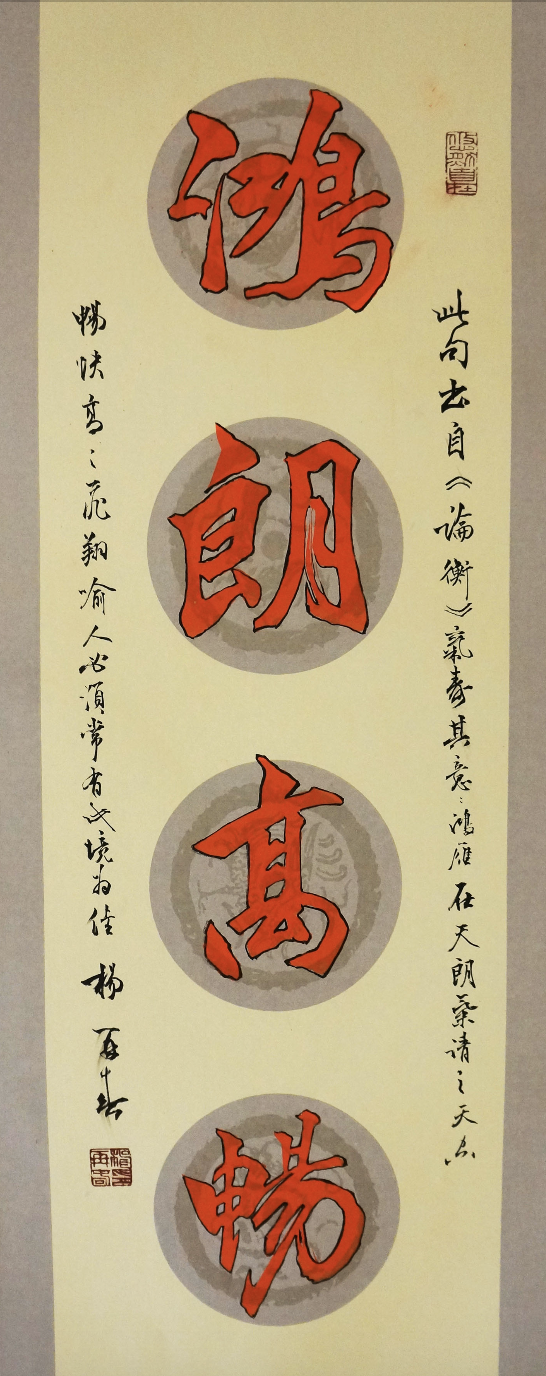 鴻朗高暢
此句出自《論衡》氣壽其意：鴻雁在天朗氣清之天空
暢快高〻飛翔喻人必須常有此境為佳 楊再春